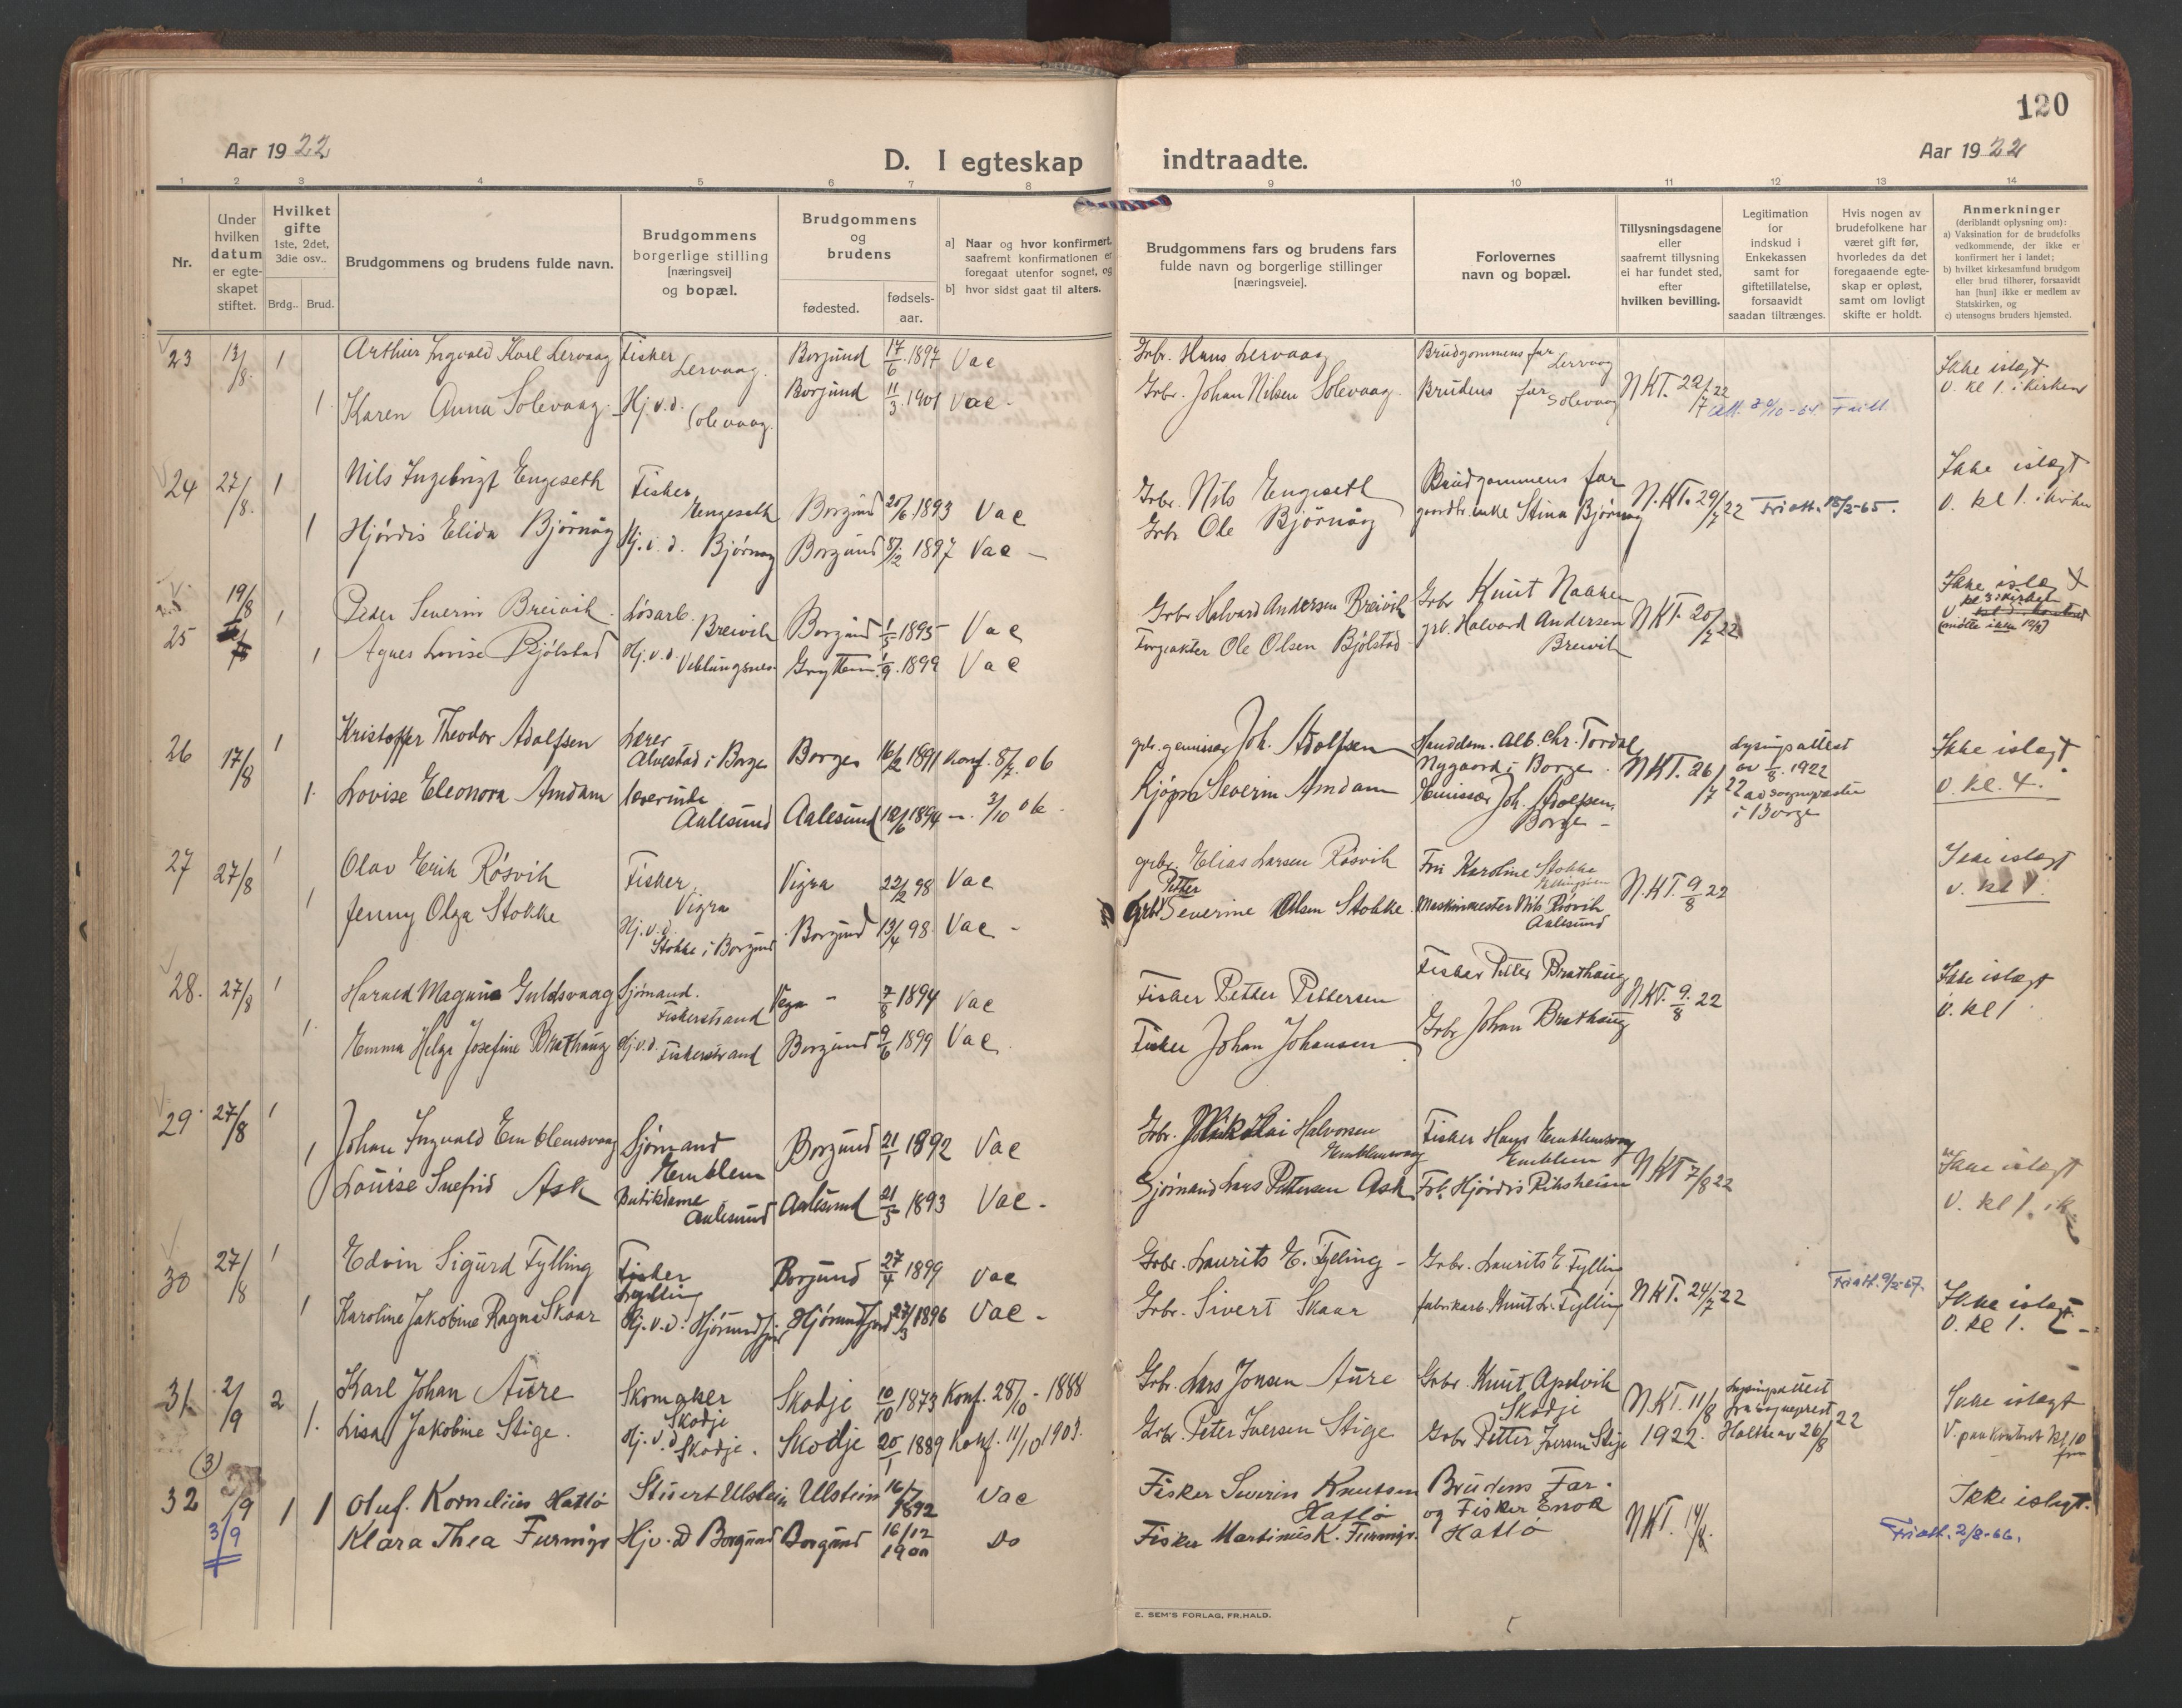 120
Aar 1922
D. I egteskap indtraadte.
Aar 1922
1 2 3 4 5 6 7 8 9 10 11 12 13 14
Nr.
Under hvilken datum er egteskapet stiftet.
Hvilket gifte 1ste, 2det, 3die osv..
Brdg.. Brud.
Brudgommens og brudens fulde navn.
Brudgommens borgerlige stilling [næringsvei] og bopæl.
Brudgommens og brudens
fødested.
fødsels-aar.
a] Naar og hvor konfirmert, saafremt konfirmationen er foregaat utenfor sognet, og
b] hvor sidst gaat til alters.
Brudgommens fars og brudens fars fulde navn og borgerlige stillinger [næringsveie].
Forlovernes navn og bopæl.
Tillysningsdagene eller saafremt tillysning ei har fundet sted, efter hvilken bevilling.
Legitimation for indskud i Enkekassen samt for giftetillatelse, forsaavidt saadan tiltrænges.
Hvis nogen av brudefolkene har været gift før, hvorledes da det foregaaende egteskap er opløst, samt om lovligt skifte er holdt.
Anmerkninger (deriblandt oplysning om):
a) Vaksination for de brudefolks vedkommende, der ikke er konfirmert her i landet;
b) hvilket kirkesamfund brudgom eller brud tilhører, forsaavidt han [hun] ikke er medlem av Statskirken, og
c) utensogns bruders hjemsted.
23 13/8. 1 Arthur Ingvald Karl Lervaag Fisker Lervaag. Borgund 17/6.1897 Vac Grbr. Hans Lervaag Brudgommens far Lervaag Ikke islegt
1. Karen Anna Solevaag Hj.v.d. Solevaag. Borgund 11/3.1901 Vac Grbr. Johan Nilsen Solevaag Brudens far Solevaag NKT. 22/7 22 V. kl 1. i kirken
24 27/8. 1 Nils Ingebrigt Engeseth Fisker Engeseth Borgund 20/6.1893 Vac Grbr. Nils Engeseth Brudgommens far N.KT. 29/7 22 Friatt. 18/2-65. Ikke islegt
1 Hjørdis Elida Bjørnøy Hj.v.d. Bjørnøy Borgund 1897 Vac Grbr Ole Bjørnøy gaardbr. enke Stina Bjørnøy V. kl 1. i kirken
25 19/8 1 Peder Severin Breivik Løsarb. Breivik Borgund 1895 Vac Grbr Halvard Andersen Breivik Grbr Knut Nakken NKT. 20/7 22 Ikke islegt
1 Agnes Lovise Bjølstad Hj.v.d. Veblungsnes Grytten 1/9.1899 Vac Ole Olsen Bjølstad grb. Halvard Andersen Breivik
26 17/8 1 Kristoffer Theodor Adolfsen Lærer Alvestad i Borge Borge 16/2 1891 Konf. 8/7.06 Joh. Adolfsen Alb. Chr. Tordal Nygaard i Borge NKT. 26/7 22 Lysingsattest av 1/8.1922 Ikke islegt
1. Lovise Eleonora Amdam lærerinde Aalesund Aalesund 12/6 1894 Kjøpm Severin Amdam Emissær Joh. Adolfsen, Borge i Borge V. kl. 4.
27 27/8 1 Olav Erik Røsvik Fisker Vigra Vigra 22/2 98 Vac grbr. Elias Larsen Røsvik Fru Karoline Stokke N.KT. 9/8 22 Ikke islegt
1 Jenny Olga Stokke Hj.v.d. Stokke i Borgund Borgund 13/4 98 Vac Grbr Petter Severine Olsen Stokke Maskinmester Nils Røsvik Aalesund V. kl 1.
28. 27/8 1 Harald Magnus Guldsvaag Sjømand. Fiskerstrand 7/8 1894 Vac Fisker Petter Pettersen Fisker Petter Brathaug NKT. 9./8 22 Ikke islegt
1. Emma Helga Josefine Brathaug Hj.v.d. Fiskerstrand Borgund 9/6 1899 Vac Fisker Johan Johansen Grbr Johan Brathaug V. kl 1
29. 27/8 1 Johan Ingvald Emblemsvaag Sjømand Emblem Borgund 21/1 1892 Vac Grbr. Nikolai Halvorsen Emblemsvaag Fisker Hans Emblemsvaag Emblem NKT 7/8 22 Ikke islegt
1 Louise Snefrid Ask Butikdame Aalesund Aalesund 21/5 1893 Vac. Sjømand Lars Pettersen Ask Frk. Hjørdis Riksheim V. kl 1. i k
30 27/8 1 Edvin Sigurd Fylling Fisker Fylling Borgund 27/4 1899 Vac Grbr. Laurits E. Fylling Grbr. Laurits E Fylling NKT. 24/7 22 Friatt. 9/2-67. Ikke islegt
1 Karoline Jakobine Ragna Skaar Hj.v.d. Hjørundfjord Hjørundfjord 27/3 1896 Vac Grbr. Sivert Skaar fabrikarb. Knut L. Fylling V. kl 1.
31 2/9 2 Karl Johan Aure Skomaker Skodje Skodje 10/10 1873 Konf. 28/10 - 1888 Grbr. Lars Jonsen Aure Grbr. Knut Apelvik Skodje NKT. 11/8 1922. Lysingsattest fra sogneprest 26/8 22 Ikke islegt
1. Lisa Jakobine Stige. Hj.v.d Skodje. Skodje 20/1 1889 Konf. 11/10 1903. Grbr. Peter Iversen Stige Grbr Petter Iversen Stige V. paa kontoret kl 10 fm
32 (3) /9 3/9 1 1 Oluf Kornelius Hatlø Ulstein Ulstein 16/7 1892 Vac Fisker Severin Knutsen Hatlø Brudens Far og Fisker Enok Hatlø NKT. 14/8. Ikke islegt.
Klara Thea Furmyr Hjv.D Borgund Borgund 16/12 1900 Do Fisker Martinus K. Furmyr. Friatt. 2/8-66.
E. SEM'S FORLAG, FR.HALD.